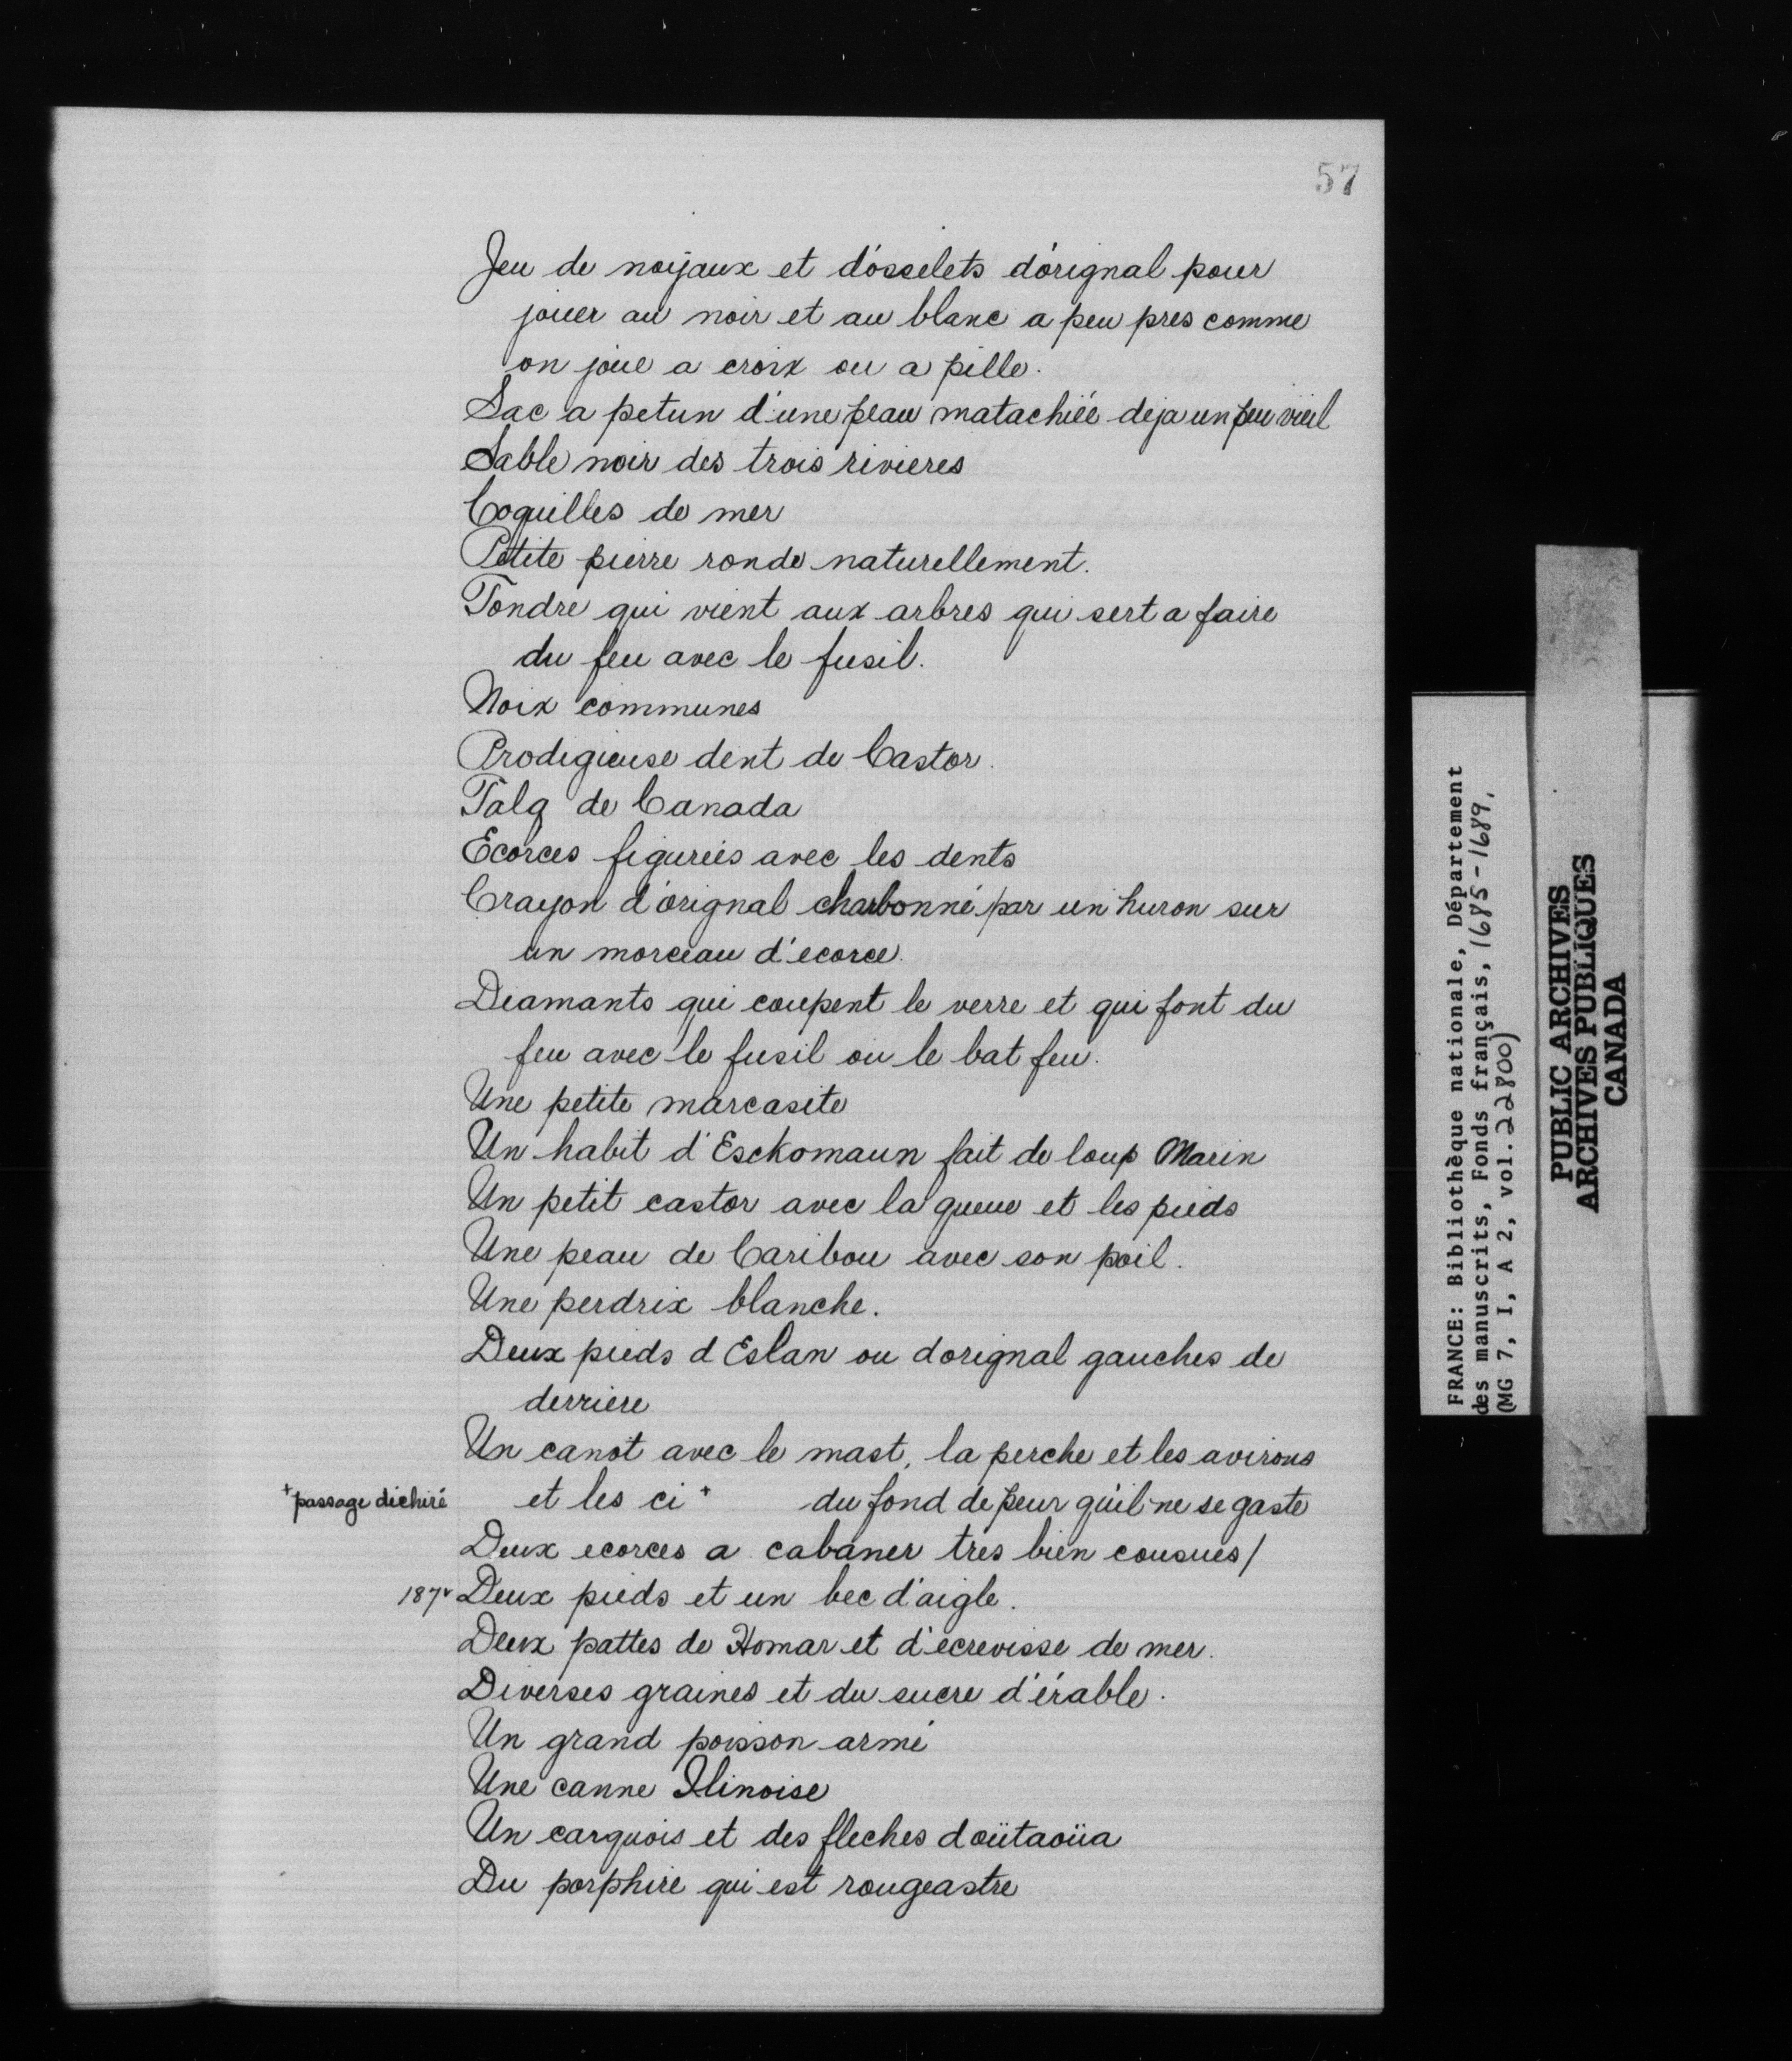 57
Jeu de noyaux et d'osselets d'orignal pour
jouer au noir et au blanc a peu pres comme
on joue a croix ou a pille.
Sac a petun d'une peau matachiée deja un peu vieil
Sable noir des trois rivieres
Coquilles de mer
Petite pierre ronde naturellement.
Tondre qui vient aux arbres qui sert a faire
du feu avec le fusil.
Noix communes
Prodigieuse dent de Castor.
Talq de Canada
Ecorces figureés avec les dents
Crayon d'orignal charbonné par un huron sur
un morceau d'ecorce.
Diamants qui coupent le verre et qui font du
feu avec le fusil ou le bat feu.
Une petite marcasite
Un habit d'Esckomaun fait de loup Marin
Un petit castor avec la queue et les pieds
Une peau de Caribou avec son poil.
Une perdrix blanche.
Deux pieds d Eslan ou dorignal gauches de
derriere
Un canot avec le mast, la perche et les avirons
+passage déchiré et les ci + du fond de peur qu'il ne se gaste
Deux ecorces a cabaner tres bien cousues/
187v Deux pieds et un bec d'aigle.
Deux pattes de Homar et d'ecrevisse de mer.
Diverses graines et du sucre d'érable.
Un grand poisson armé
Une canne Ilinoise
Un carquois et des fleches doütaoüa
Du porphire qui est rougeastre
FRANCE: Bibliothèque nationale, Département
des manuscrits, Fonds français, 1685-1689,
(MG 7, I, A 2, vol. 22800)
PUBLIC ARCHIVES
ARCHIVES PUBLIQUES
CANADA